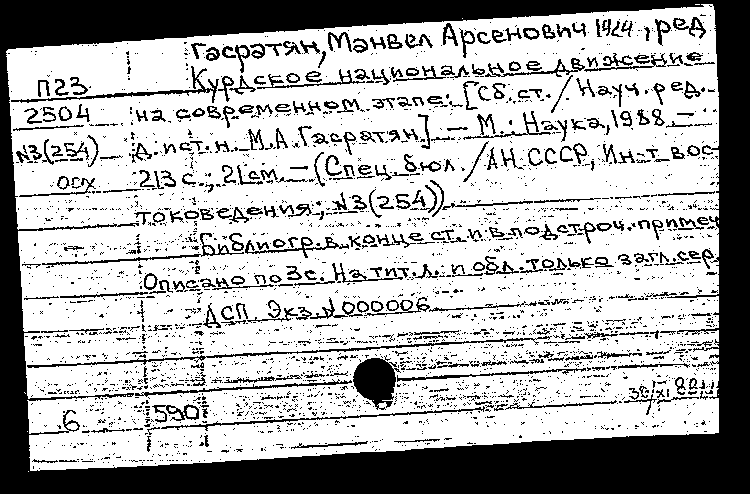 Гасратян, Манвел Арсенович 1924, ред
П23 Курдское национальное движение
2504 на современном этапе: [Сб. ст. / Науч. ред.
N3(254) д. ист. н. М.А. Гасратян] – М.: Наука, 1988. –
осх 213 с.; 21 см. – (Спец. бюл. / АН СССР, Ин-т вос-
токоведения; N3(254)).
Библиогр. в конце ст. и в подстроч. примеч
Описано по 3 с. На тит. л. и обл. только загл. сер.
ДСП. Экз. N000006
6 590